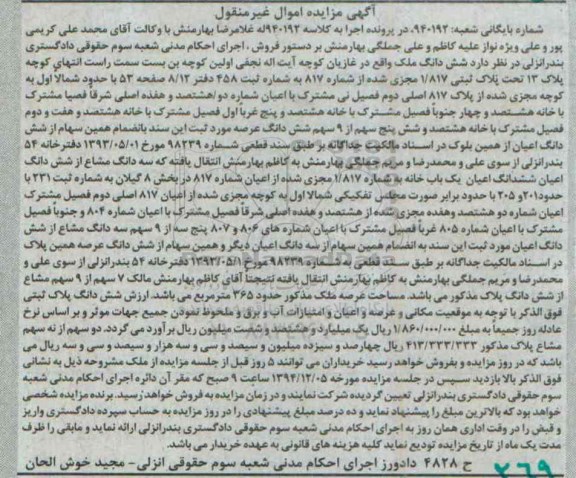 آگهی مزایده اموال غیرمنقول
شماره بایگانی شعبه: ۹۴۰۱۹۲، در پرونده اجرا به کلاسه ۹۴۰۱۹۲له غلامرضا بهارمنش با وکالت آقای محمد علی کریمی
پور و علی ویژه نواز علیه کاظم و علی جملگی بهارمنش بر دستور فروش ، اجرای احکام مدنی شعبه سوم حقوقی دادگستری
بندرانزلی در نظر دارد شش دانگ ملک واقع در غازیان کوچه آیت اله نجفی اولین کوچه بن بست سمت راست انتهای کوچه
پلاک ۱۳ تحت پلاک ثبتی ۱/۸۱۷ مجزی شده از شماره ۸۱۷ به شماره ثبت ۴۵۸ دفتر ۸/۱۲ صفحه ۵۳ با حدود شمالا اول به
کوچه مجزی شده از پلاک ۸۱۷ اصلی دوم فصل نی مشترک با اعیان شماره دو/هشتصد و هفده اصلی شرقاً فصیا مشترک
با خانه هشتصد و چهار جنوباً فصل مشترک با خانه هشتصد و پنج غرباً اول فصیل مشترک با خانه هشتصد و هفت و دوم
فصیل مشترک با خانه هشتصد و شش پنج سهم از ۹ سهم شش دانگ عرصه مورد ثبت این سند بانضمام همین سهام از شش
دانگ اعیان از همین بلوک در اسناد مالکیت جداگانه بر طبق سند قطعی شماره ۹۸۲۳۹ مورخ ۱۳۹۳/۰۵/۰۱ دفترخانه ۵۴
بندرانزلی از سوی علی و محمدرضا و مریم جملگی بهارمنش به کاظم بهارمنش انتقال یافته که سه دانگ مشاع از شش دانگ
اعیان ششدانگ اعیان یک باب خانه به شماره ۱/۸۱۷ مجزی شده از اعیان شماره ۸۱۷ در بخش ۸ گیلان به شماره ثبت ۲۳۱ با
حدود ۲۰۱ و ۲۰۵ با حدود برابر صورت مجلس تفکیکی شمالا اول به کوچه مجزی شده از اعیان ۸۱۷ اصلی دوم فصیل مشترک
اعیان شماره دو هشتصد وهفده مجزی شده از هشتصد و هفده اصلی شرقاً فصیل مشترک با اعیان شماره ۸۰۴ و جنوبا فصیل
مشترک با اعیان شماره ۸۰۵ غرباً فصیل مشترک با اعیان شماره های ۸۰۶ و ۸۰۷ پنج سه از ۹ سهم سه دانگ مشاع از شش
دانگ اعیان مورد ثبت این سند به انضمام همین سهام از سه دانگ اعیان دیگر و همین سهام از شش دانگ عرصه همین پلاک
در اسناد مالکیت جداگانه بر طبق سند قطعی به شماره ۹۸۲۳۹ مورخ ۱۳۹۳/۰۵/۰۱دفترخانه ۵۴ بندرانزلی از سوی علی و
محمدرضا و مریم جملگی بهارمنش به کاظم بهارمنش انتقال یافته نتیجتاً آقای کاظم بهارمنش مالک ۷ سهم از ۹ سهم مشاع
از شش دانگ پلاک مذکور می باشد. مساحت عرصه ملک مذکور حدود ۳۶۵ مترمربع می باشد. ارزش شش دانگ پلاک ثبتی
فوق الذکر با توجه به موقعیت مکانی و عرصه و اعیان و امتیازات آب و برق و ملحوظ نمودن جمیع جهات موثر و بر اساس نرخ
عادله روز جمیعاً به مبلغ ۱/۸۶۰/۰۰۰/۰۰۰ ریال یک میلیارد و هشتصد و شصت میلیون ریال برآورد می گردد. دو سهم از نه سهم
مشاع پلاک مذکور ۴۱۳/۳۳۳/۳۳۳ ریال چهارصد و سیزده میلیون و سیصد و سی و سه هزار و سیصد و سی و سه ریال می
باشد که در روز مزایده و بفروش خواهد رسید خریداران می توانند ۵ روز قبل از جلسه مزایده از ملک مشروحه ذیل به نشانی
فوق الذکر بالا بازدید سپس در جلسه مزایده مورخه ۱۳۹۴/۱۲/۰۵ ساعت ۹ صبح که مقر آن دائره اجرای احکام مدنی شعبه
سوم حقوقی دادگستری بندرانزلی تعیین گردیده شرکت نمایند و در زمان مزایده به فروش خواهد رسید. برنده مزایده شخصی
خواهد بود که بالاترین مبلغ را پیشنهاد نماید و ده درصد مبلغ پیشنهادی را در روز مزایده به حساب سپرده دادگستری واریز
و قبض را در وقت اداری همان روز به اجرای احکام مدنی شعبه سوم حقوقی دادگستری بندرانزلی ارائه نماید و مابقی را ظرف
مدت یک ماه از تاریخ مزایده تودیع نماید کلیه هزینه های قانونی به عهده خریدار می باشد.
ح ۴۸۲۸ دادورز اجرای احکام مدنی شعبه سوم حقوقی انزلی- مجید خوش الحان
۲۶۹